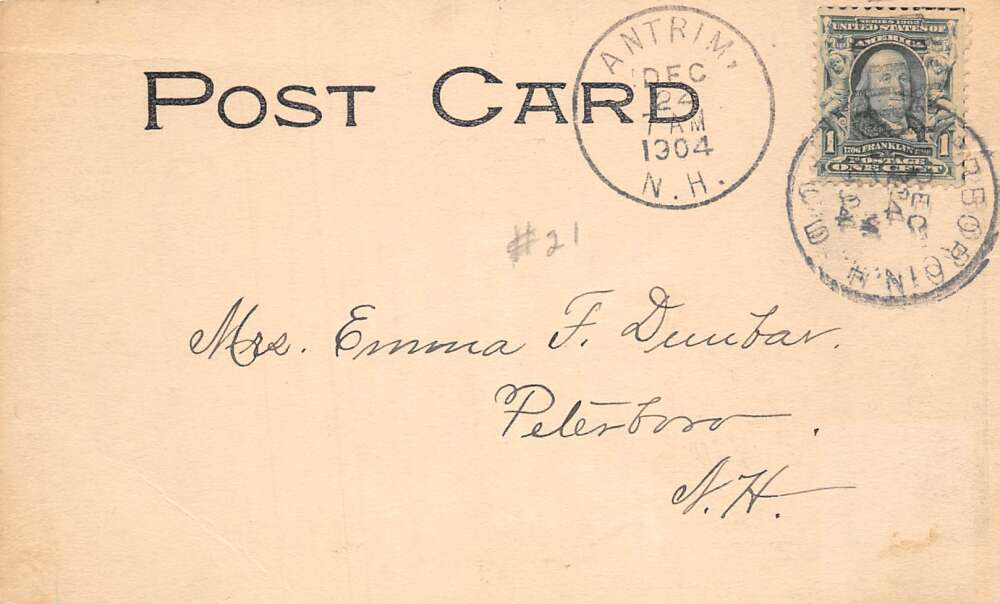 POST CARD
ANTRIM,
DEC
24
7 AM
1904
N.H.
SERIES 1902
UNITED STATES OF
AMERICA
1 FRANKLIN 1
POSTAGE
ONE CENT
DEC
24
N.H.
#21
Mrs. Emma F. Dunbar.
Petersboro.
N.H.